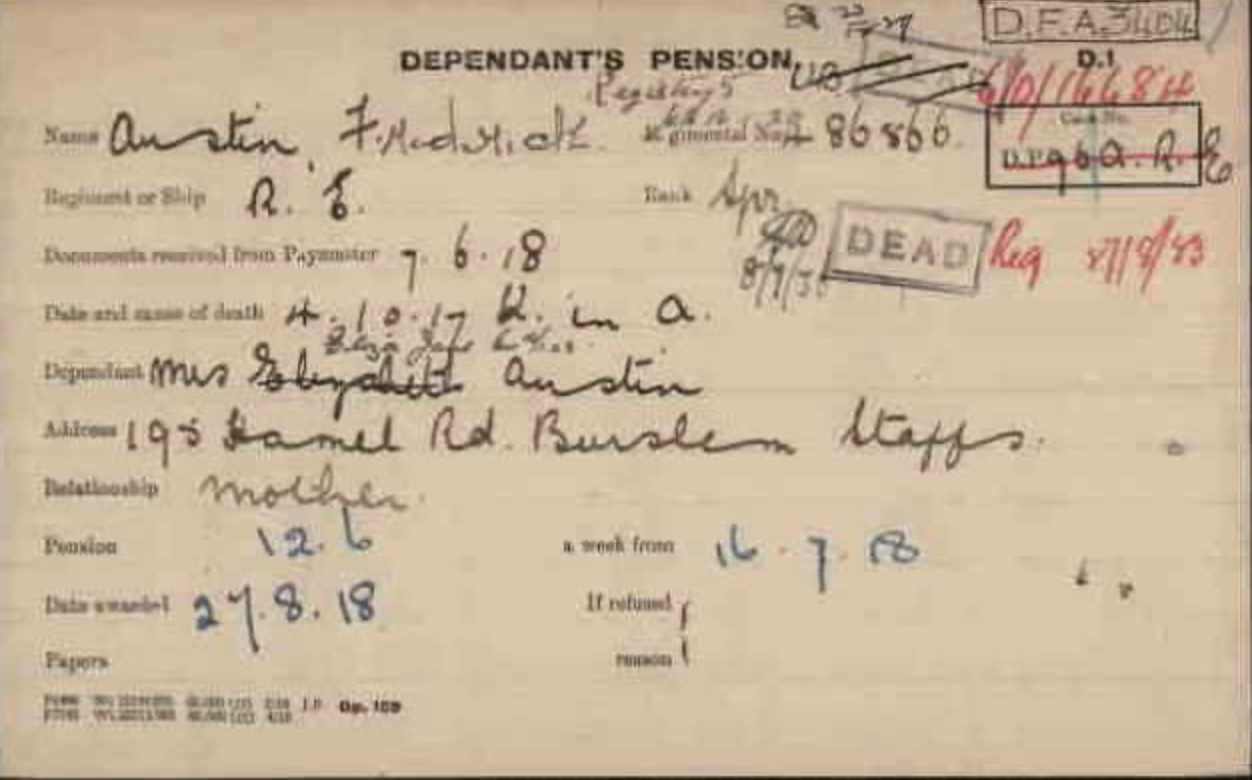 D.F.A.3404
DEPENDANT'S PENSION.
D.1
6/D/16684
Registry 5
Name Austin, Frederick. Regimental No. 86866.
Case No.
D.P. 96 A. R. E
Regiment or Ship R. E. Rank Spr.
DEAD
Documents received from Paymaster 7. 6. 18
Date and cause of death 4. 10. 17 K. in A.
Eliza Jane
Dependant Mrs Elizabeth Austin
Address 195 Hamel Rd. Burslem Staffs.
Relationship Mother.
Pension 12.6 a week from 16. 7. 18
Date awarded 27. 8. 18 If refused
Papers reason
Gp. 109